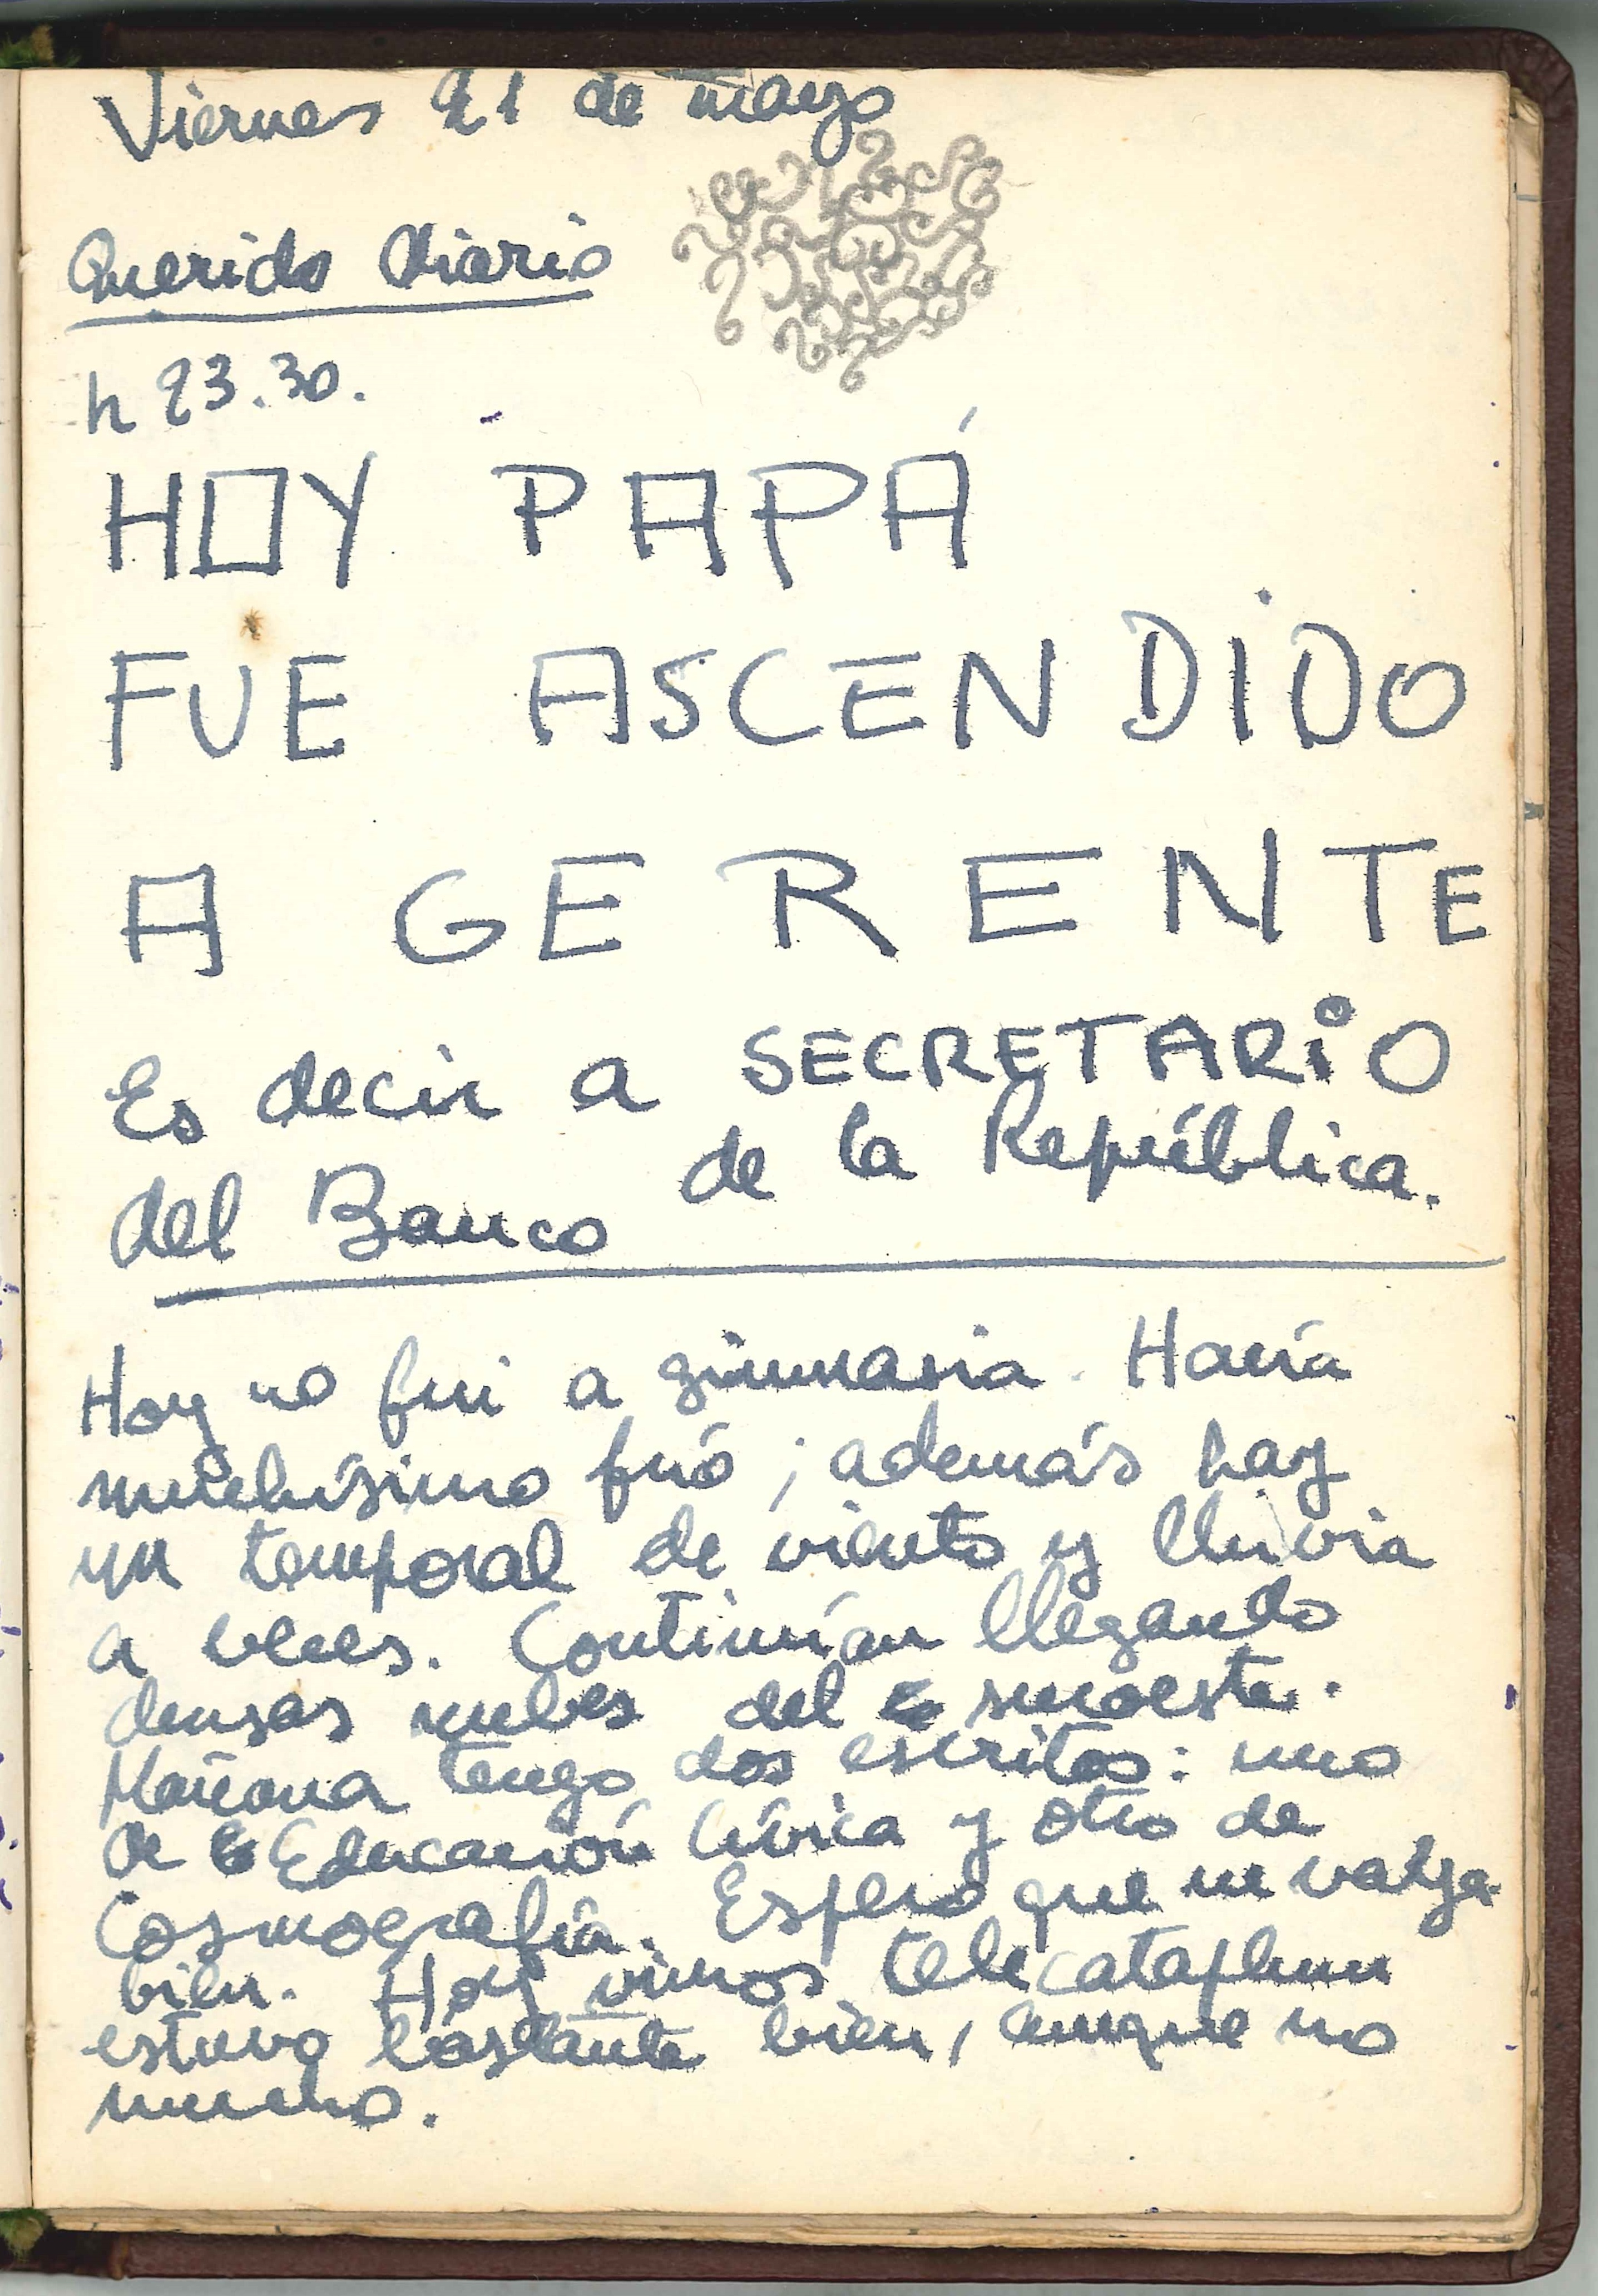 Viernes 21 de mayo
Querido Diario
h 23.30.
HOY PAPÁ
FUE ASCENDIDO
A GERENTE
Es decir a SECRETARIO
del Banco de la República.
Hoy no fui a gimnasia. Hacía
muchísimo frió; además hay
un temporal de viento y lluvia
a veces. Continúan llegando
densas nubes del suroeste.
Mañana tengo dos escritos: uno
de Educación Cívica y otro de
Cosmografía. Espero que me vaya
bien. Hoy vimos telecataplum
estuvo bastante bien, aunque no
mucho.